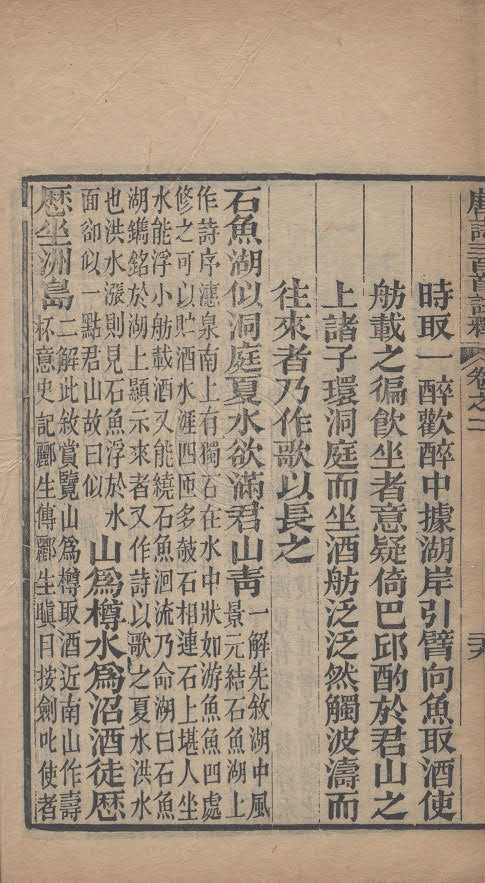 唐詩三百首註釋 卷之二 二六
時取一醉歡醉中據湖岸引臂向魚取酒使
舫載之徧飲坐者意疑倚巴邱酌於君山之
上諸子環洞庭而坐酒舫泛泛然觸波濤而
往來者乃作歌以長之
石魚湖似洞庭夏水欲滿君山靑一解先敘湖中風
景元結石魚湖上
作詩序漶泉南上有獨石在水中狀如游魚魚凹處
修之可以貯酒水涯四匝多攲石相連石上堪人坐
水能浮小舫載酒又能繞石魚洄流乃命湖曰石魚
湖鐫銘於湖上顯示來者又作詩以歌之夏水洪水
也洪水漲則見石魚浮於水
面卻似一點君山故曰似
山爲樽水爲沼酒徒歷
歷坐洲島二解此敘賞覽山爲樽取酒近南山作壽
杯意史記酈生傳酈生瞋目按劍叱使者